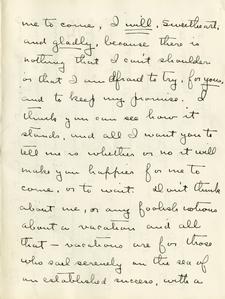 me to come, I will, sweetheart,
and gladly, because there is
nothing that I can't shoulder
or that I am afraid to try, for you,
and to keep my promise. I
think you can see how it
stands, and all I want you to
tell me is, whether or no it will
make you happier for me to
come, or to wait. Don't think
about me, or any foolish notions
about a vacation and all
that – vacations are for those
who sail serenely on the sea of
an established success, with a